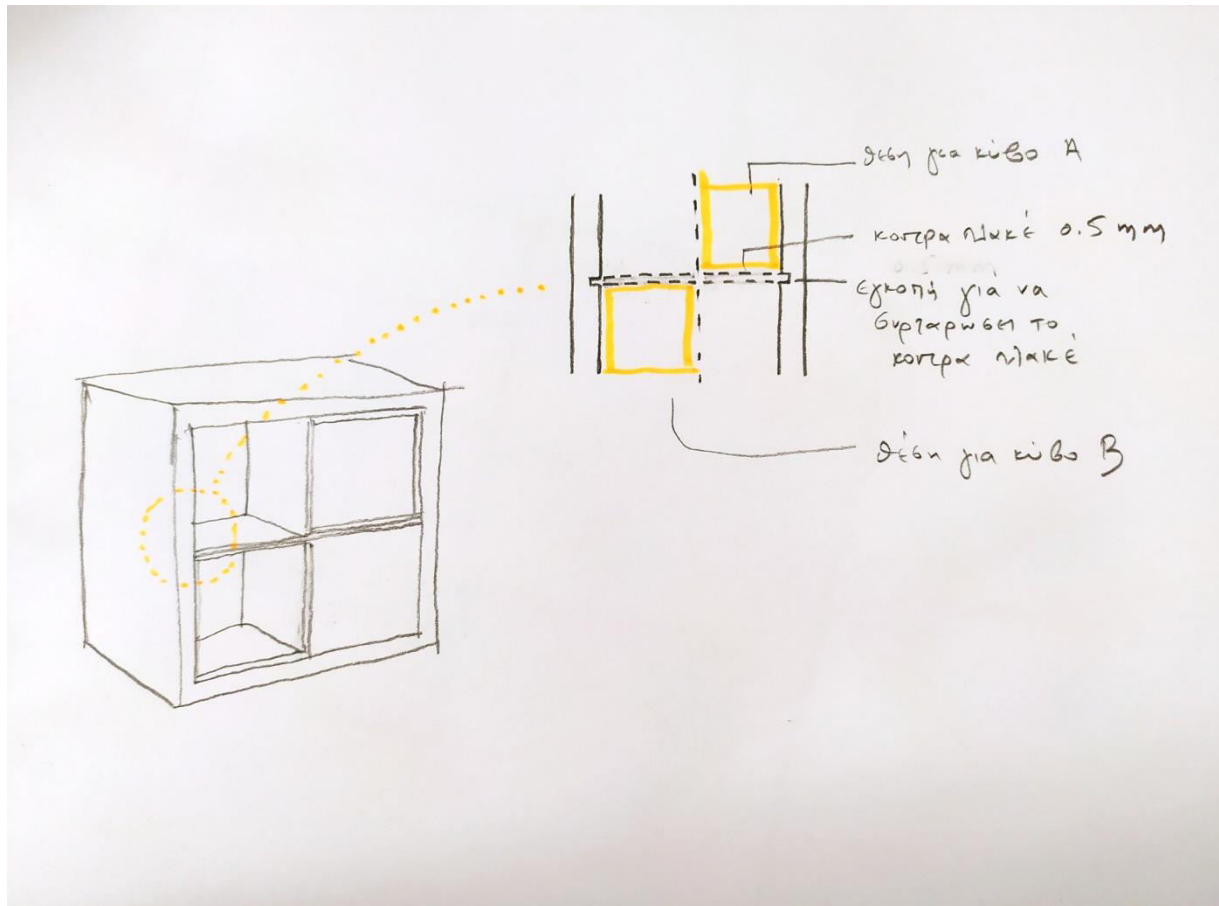 θέση για κύβο Α
κοντρα πλακέ 0.5 mm
0.5 mm
εγκοπή για να
συρταρωσει το
κοντρα πλακέ
θέση για κύβο Β